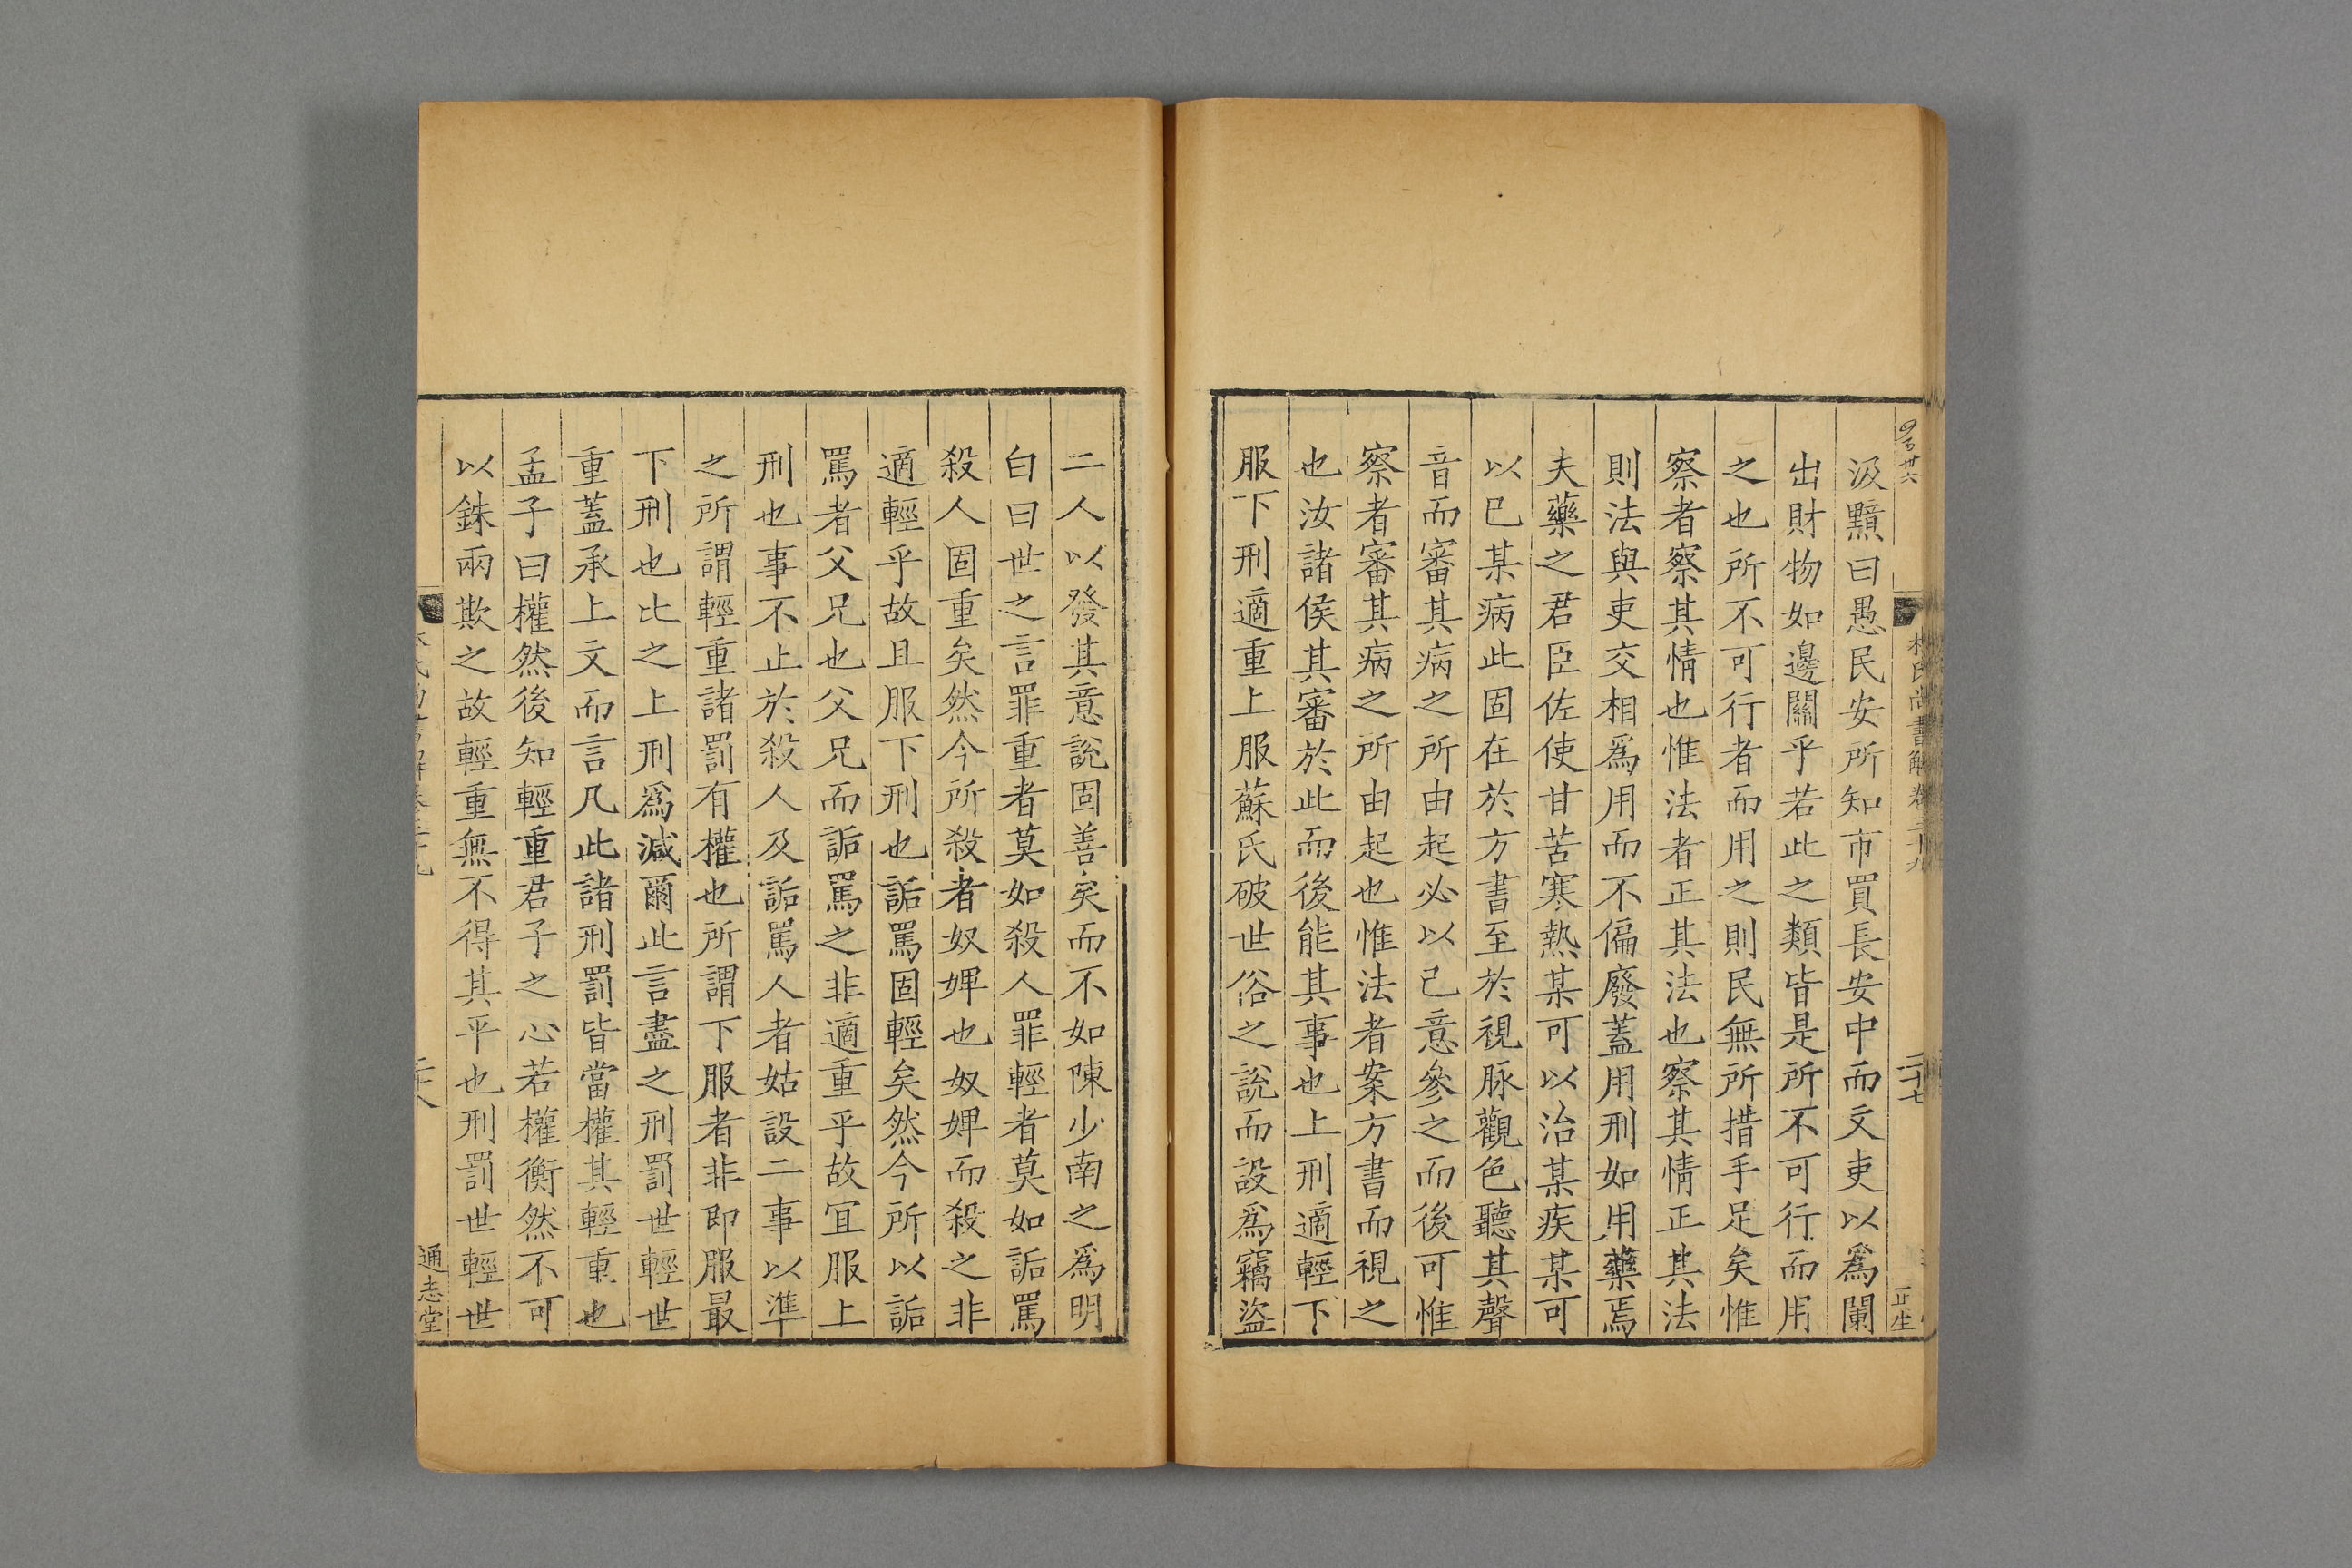 四百卅六
林氏尚書解卷三十九
二十七
正生
汲黯曰愚民安所知市買長安中而文吏以爲闌
出財物如邊關乎若此之類皆是所不可行而用
之也所不可行者而用之則民無所措手足矣惟
察者察其情也惟法者正其法也察其情正其法
則法與吏交相爲用而不偏廢蓋用刑如用藥焉
夫藥之君臣佐使甘苦寒熱某可以治某疾某可
以已某病此固在於方書至於視脉觀色聽其聲
音而審其病之所由起必以己意參之而後可惟
察者審其病之所由起也惟法者案方書而視之
也汝諸侯其審於此而後能其事也上刑適輕下
服下刑適重上服蘇氏破世俗之說而設爲竊盜
二人以發其意說固善矣而不如陳少南之爲明
白曰世之言罪重者莫如殺人罪輕者莫如詬罵
殺人固重矣然今所殺者奴婢也奴婢而殺之非
適輕乎故且服下刑也詬罵固輕矣然今所以詬
罵者父兄也父兄而詬罵之非適重乎故宜服上
刑也事不止於殺人及詬罵人者姑設二事以準
之所謂輕重諸罰有權也所謂下服者非即服最
下刑也比之上刑爲減爾此言盡之刑罰世輕世
重蓋承上文而言凡此諸刑罰皆當權其輕重也
孟子曰權然後知輕重君子之心若權衡然不可
以銖兩欺之故輕重無不得其平也刑罰世輕世
通志堂